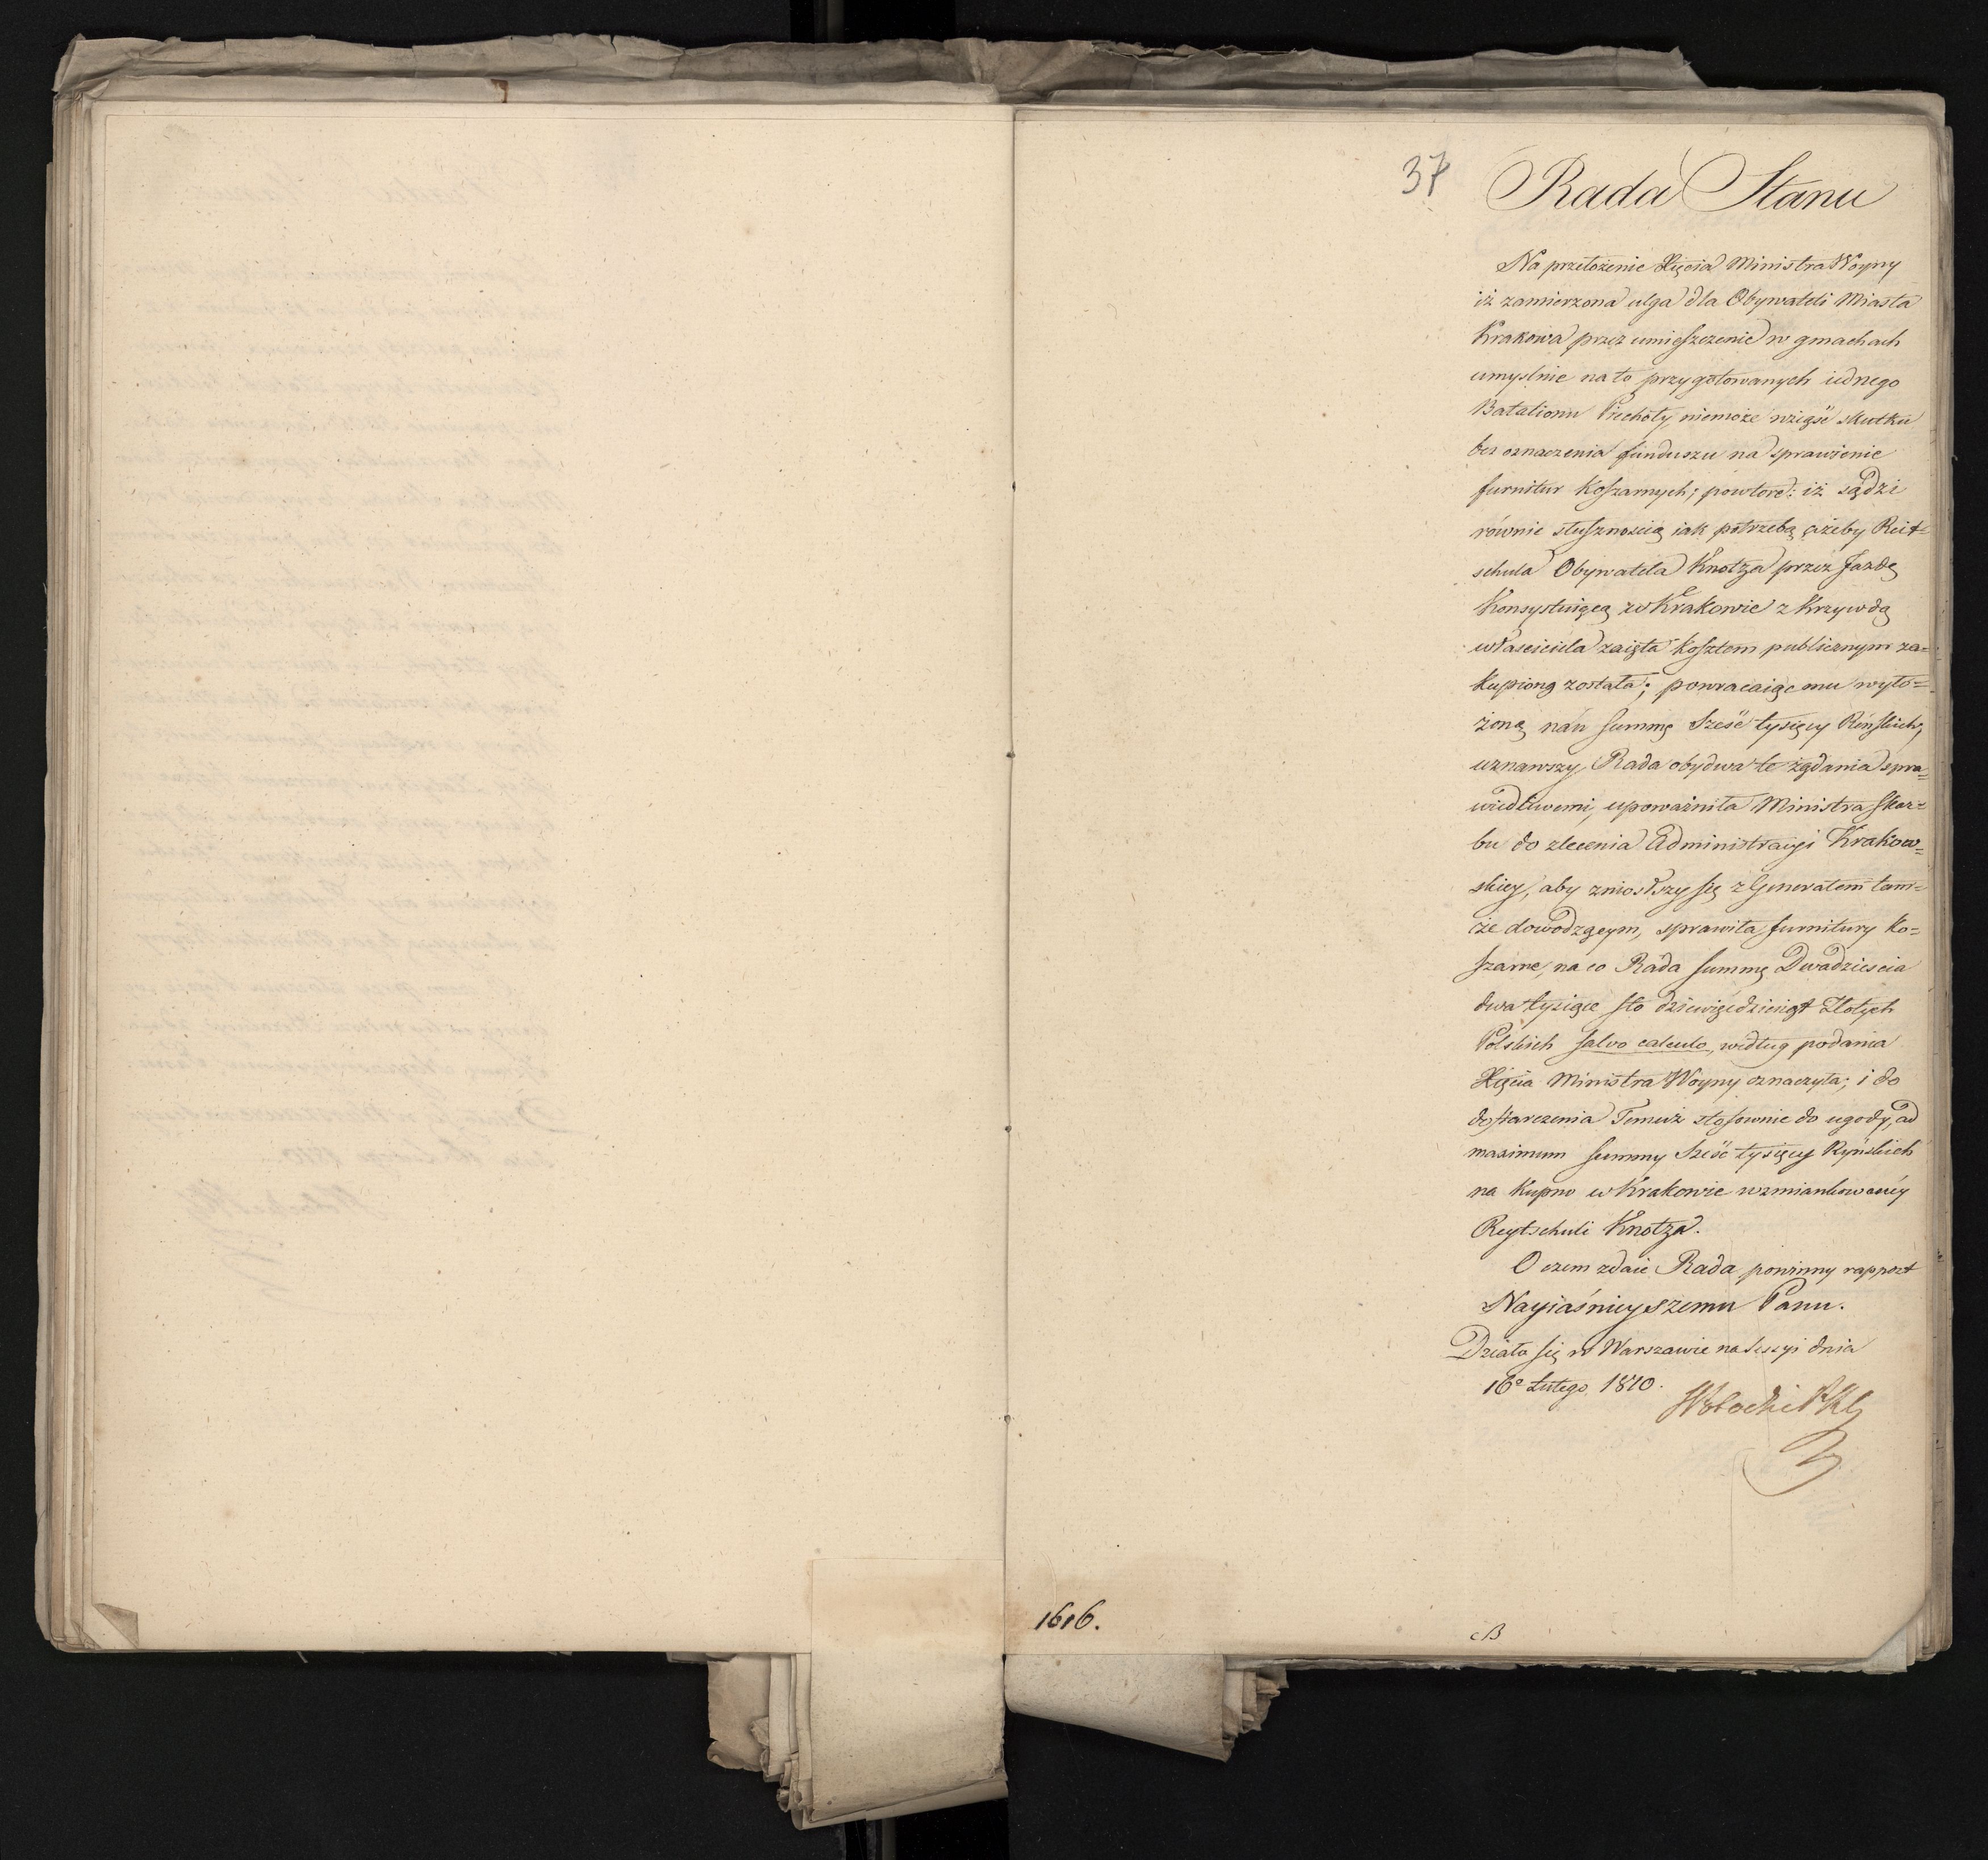 37
Rada Stanu
Na przełożenie Xięcia Ministra Woyny
iż zamierzona ulga dla Obywateli Miasta
Krakowa przez umieszczenie w gmachach
umyslnie na to przygotowanych iednego
Batalionu Piechoty, niemoże wziąść skutku
bez oznaczenia funduszu na sprawienie
furnitur Koszarnych; powtore: iż sądzi
równie słusznoscią iak potrzebą ażeby Reit=
schula Obywatela Knotza przez Jazdę
Konsystuiącą w Krakowie z Krzywdą
własciciela zaięta kosztem publicznym za=
kupioną została; powracaiąc mu wyło=
żoną nań summę Sześć tysięcy Rińskich,
uznawszy Rada obydwa te żądania spra=
wiedliwemi, upoważniła Ministra Skar=
bu do zlecenia Administracyi Krakow=
skiey, aby zniosłszy się z Generałem tam=
że dowodzącym, sprawiła furnitury Ko=
szarne, na co Rada summę Dwadziescia
dwa tysiące sto dziewięćdziesiąt Złotych
Polskich salvo calculo, według podania
Xięcia Ministra Woyny oznaczyła; i do
dostarczenia Temuż stosownie do ugody, ad
maximum summy Sześć tysięcy Ryńskich
na Kupno w Krakowie wzmiankowaney
Reytschuli Knotza.
O czem zdaie Rada powinny rapport
Nayiaśnieyszemu Panu.
Działo się w Warszawie na Sessyi dnia
16º Lutego 1810.
1616.
B